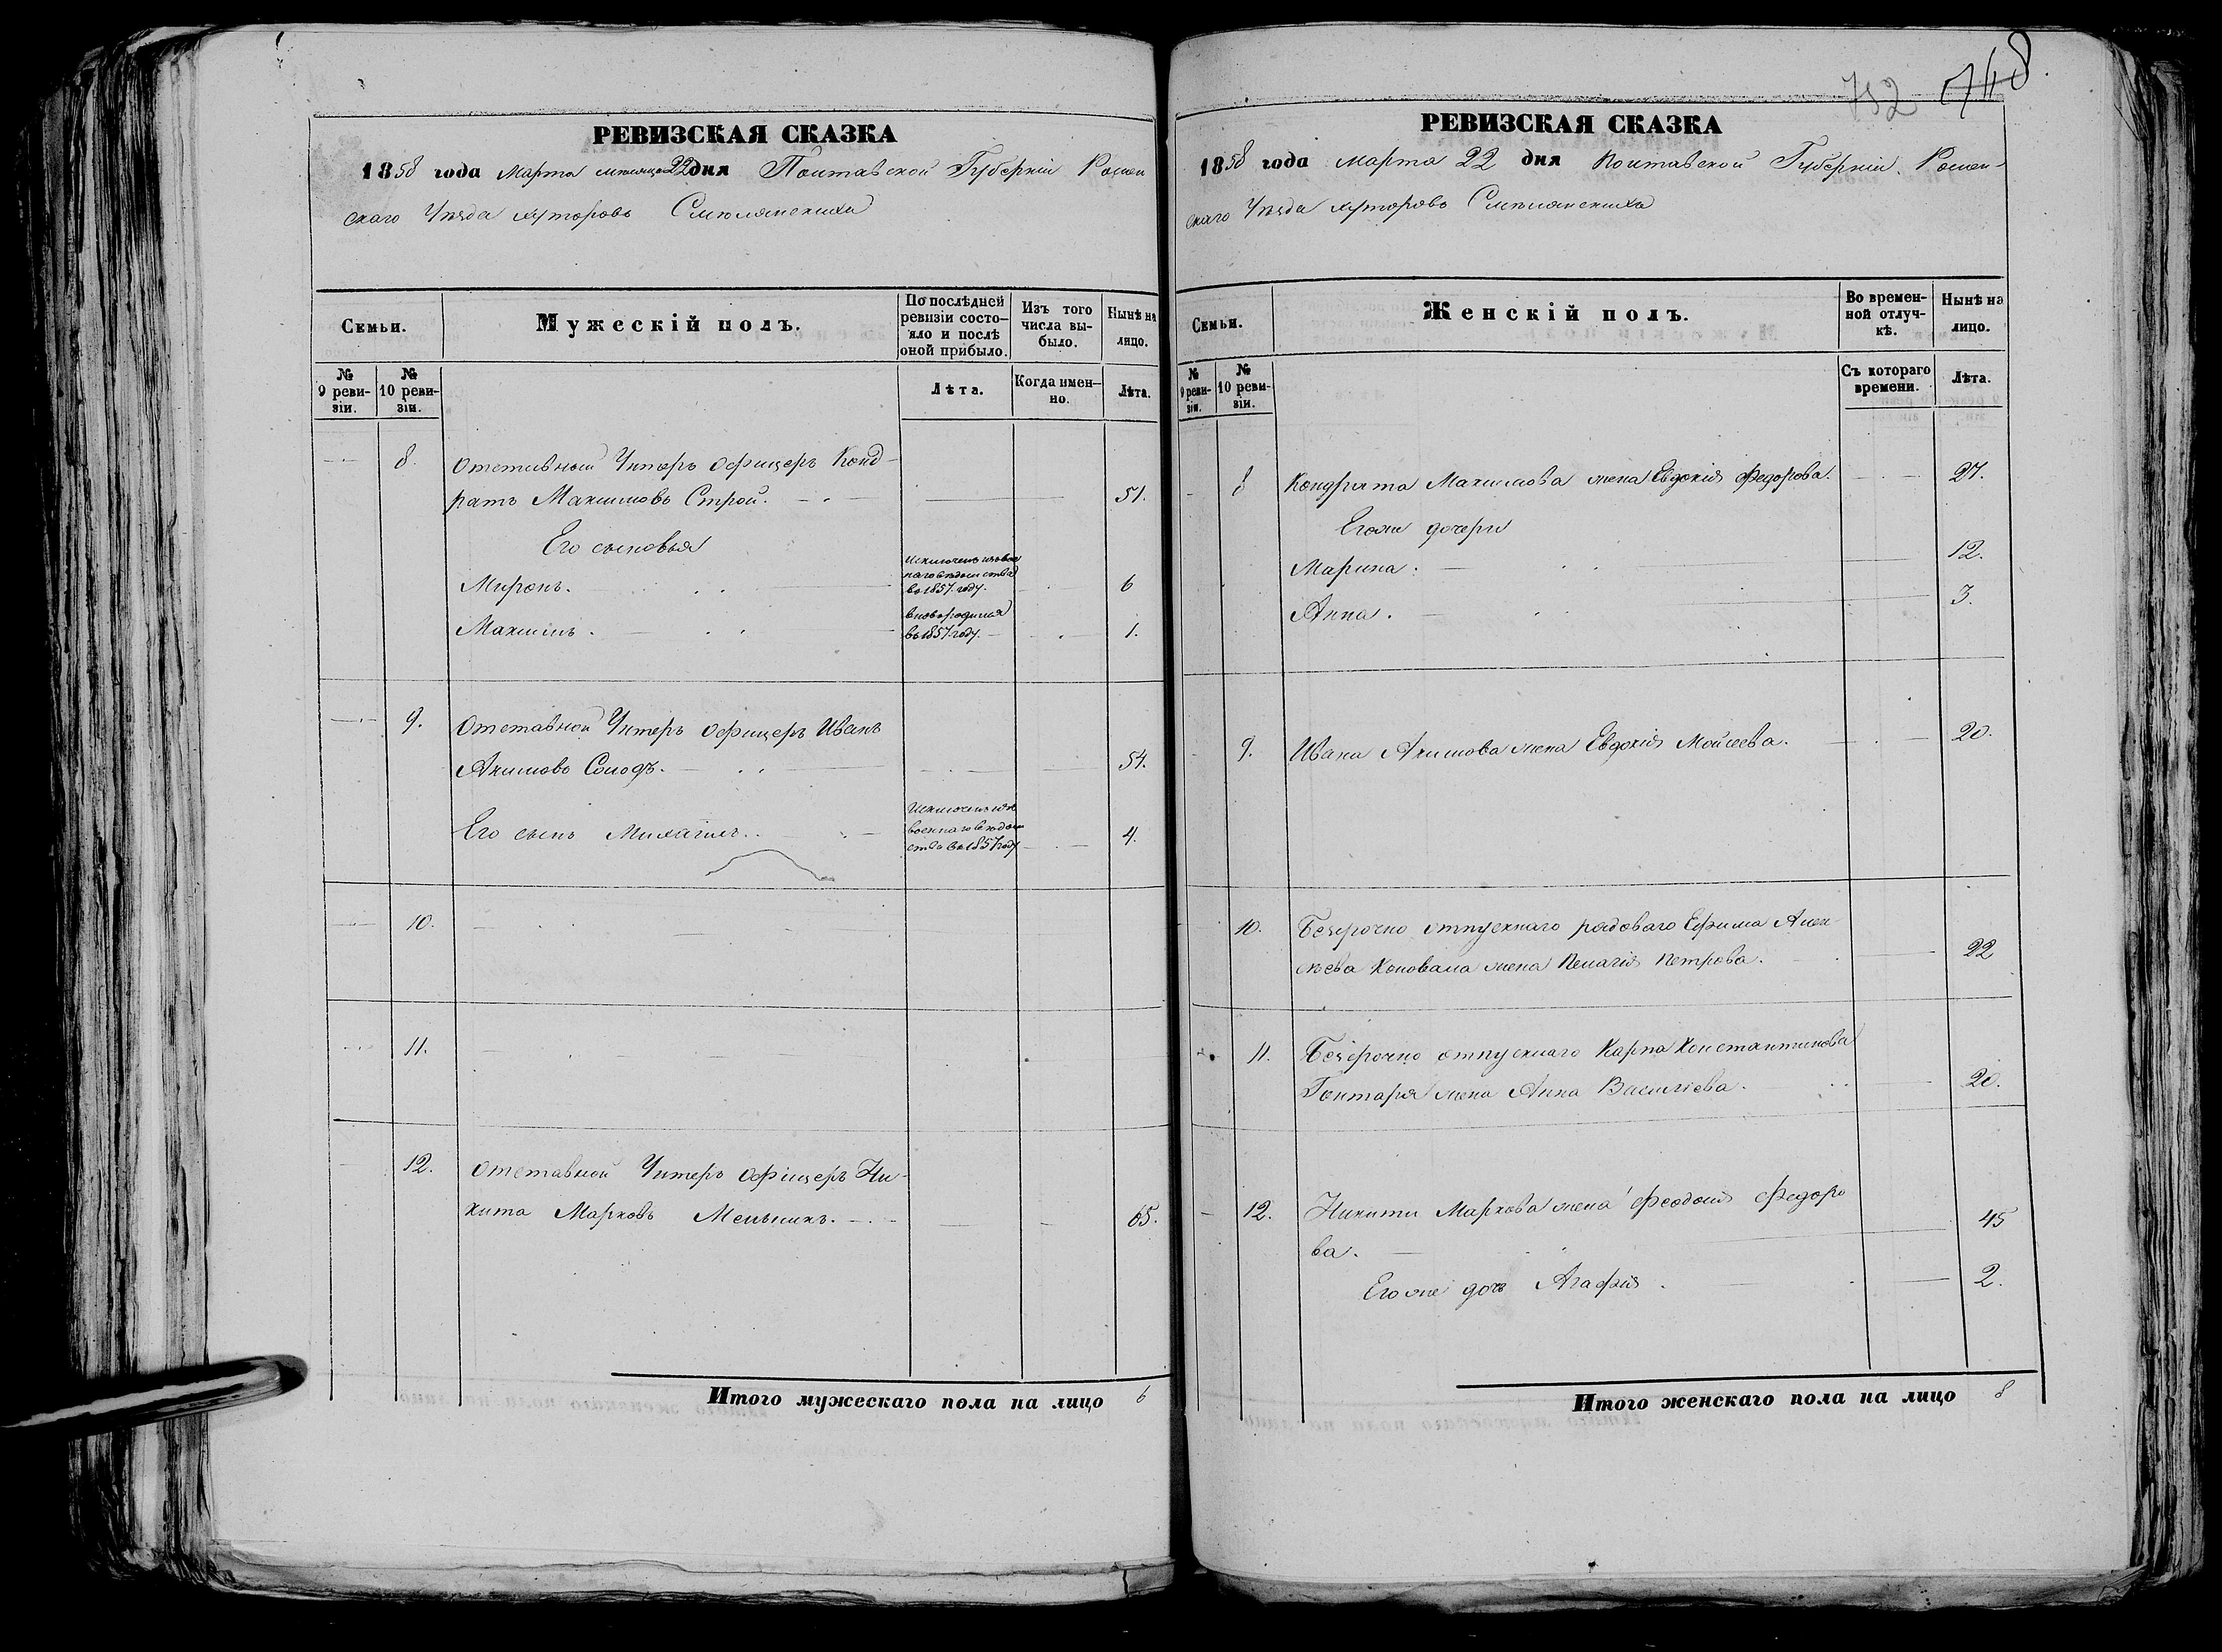 РЕВИЗСКАЯ СКАЗКА
1858 года Марта месяца 22 дня Полтавской Губерніи Ромен
скаго Уѣзда хуторовъ Смѣлянскихъ
Семьи.
Мужескій полъ.
По послѣдней ревизіи состо-
яло и послѣ
оной прибыло.
Изъ того
числа вы-
было.
Нынѣ на
лицо.
№
9 реви-
зіи.
№
10 реви-
зіи.
Лѣта.
Когда имен-
но.
Лѣта.
8. Отставной Унтеръ офицеръ Конд-
ратъ Максимовъ Строй. 51.
Его сыновья
Исключенъ изъ воен
наго вѣдомства
Миронъ. въ 1857. году. 6
вновь родился
Максимъ. въ 1857. году. 1.
9. Отставной Унтеръ офицеръ Иванъ
Акимовъ Солодъ. 54.
Исключенъ изъ
Его сынъ Михаилъ. военнаго вѣдом 4.
ства въ 1857 году
10.
11.
12. Отставной Унтеръ офицеръ Ни-
кита Марковъ Мельникъ. 65.
Итого мужескаго пола на лицо 6
752 748.
РЕВИЗСКАЯ СКАЗКА
1858 года Марта 22 дня Полтавской Губерніи. Ромен-
скаго Уѣзда хуторовъ Смѣлянскихъ
Семьи.
Женскій полъ.
Во времен-
ной отлуч-
кѣ.
Нынѣ на
лицо.
№
9 реви-
зіи.
№
10 реви-
зіи.
Съ котораго
времени.
Лѣта.
8 Кондрата Максимова жена Евдокія Федорова. 27.
Егоже дочери
Марина. 12.
Анна. 3.
9. Ивана Акимова жена Евдокія Мойсеева. 20.
10. Безсрочно отпускнаго рядоваго Ефима Алек
сѣева Коновала жена Пелагія Петрова. 22
11. Безсрочно отпускнаго Карпа Константинова
Гонтаря жена Анна Василіева. 20.
12. Никиты Маркова жена Феодосія Федоро
ва. 45
Егоже дочь Агафія. 2.
Итого женскаго пола на лицо 8